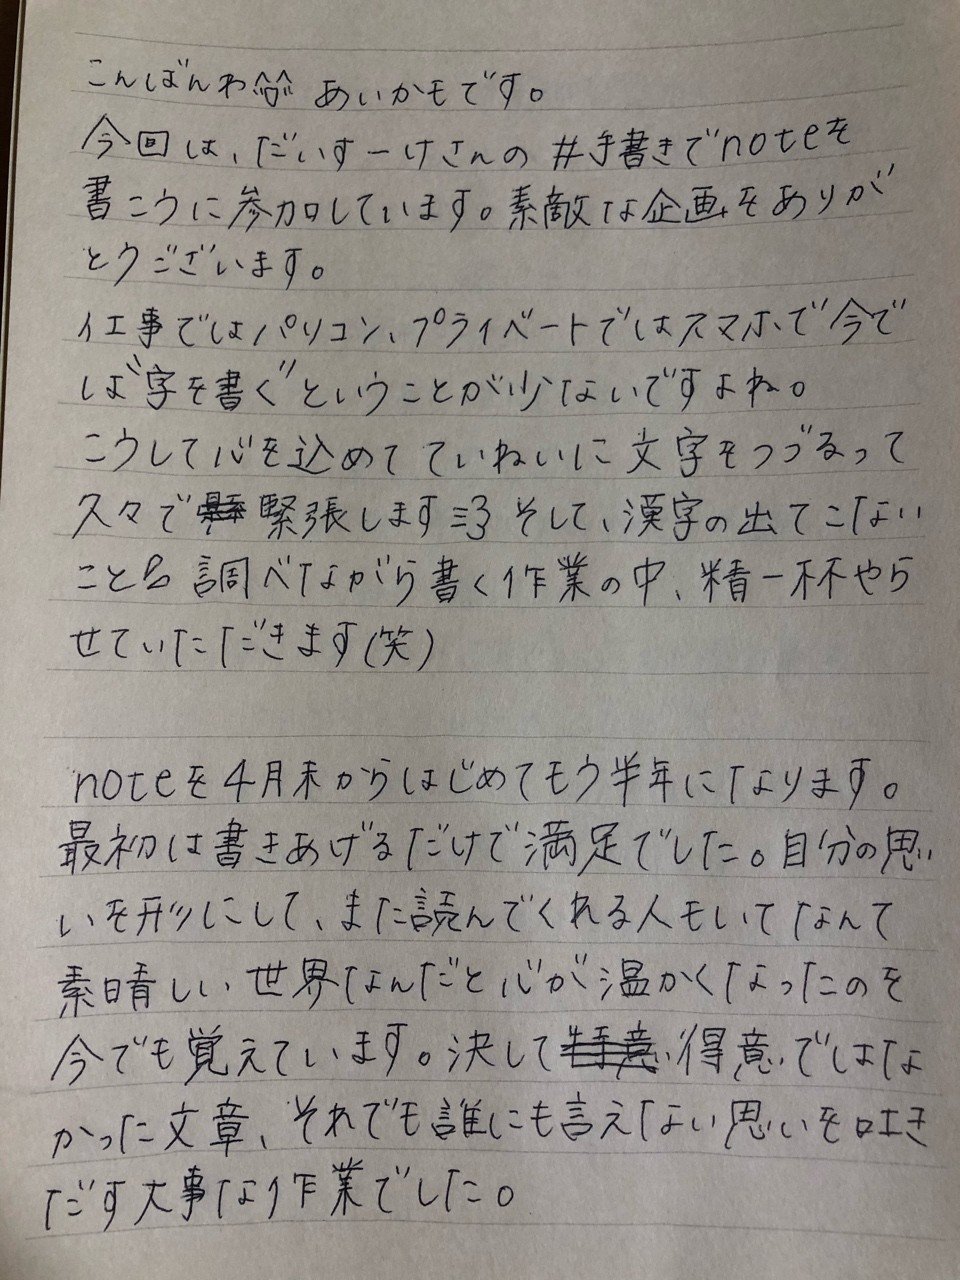 こんばんわ^^ あいかもです。
今回は、だいすーけさんの #手書きでnoteを
書こうに参加しています。素敵な企画をありが
とうございます。
仕事ではパソコン、プライベートではスマホで今で
は“字を書く”ということが少ないですよね。
こうして心を込めて ていねいに文字をつづるって
久々で 緊張します そして、漢字の出てこない
こと 調べながら書く作業の中、精一杯やら
せていただきます(笑)
noteを4月末からはじめてもう半年になります。
最初は書きあげるだけで満足でした。自分の思
いを形にして、また読んでくれる人もいてなんて
素晴しい世界なんだと心が温かくなったのを
今でも覚えています。決して 得意ではな
かった文章、それでも誰にも言えない思いを吐き
だす大事な作業でした。